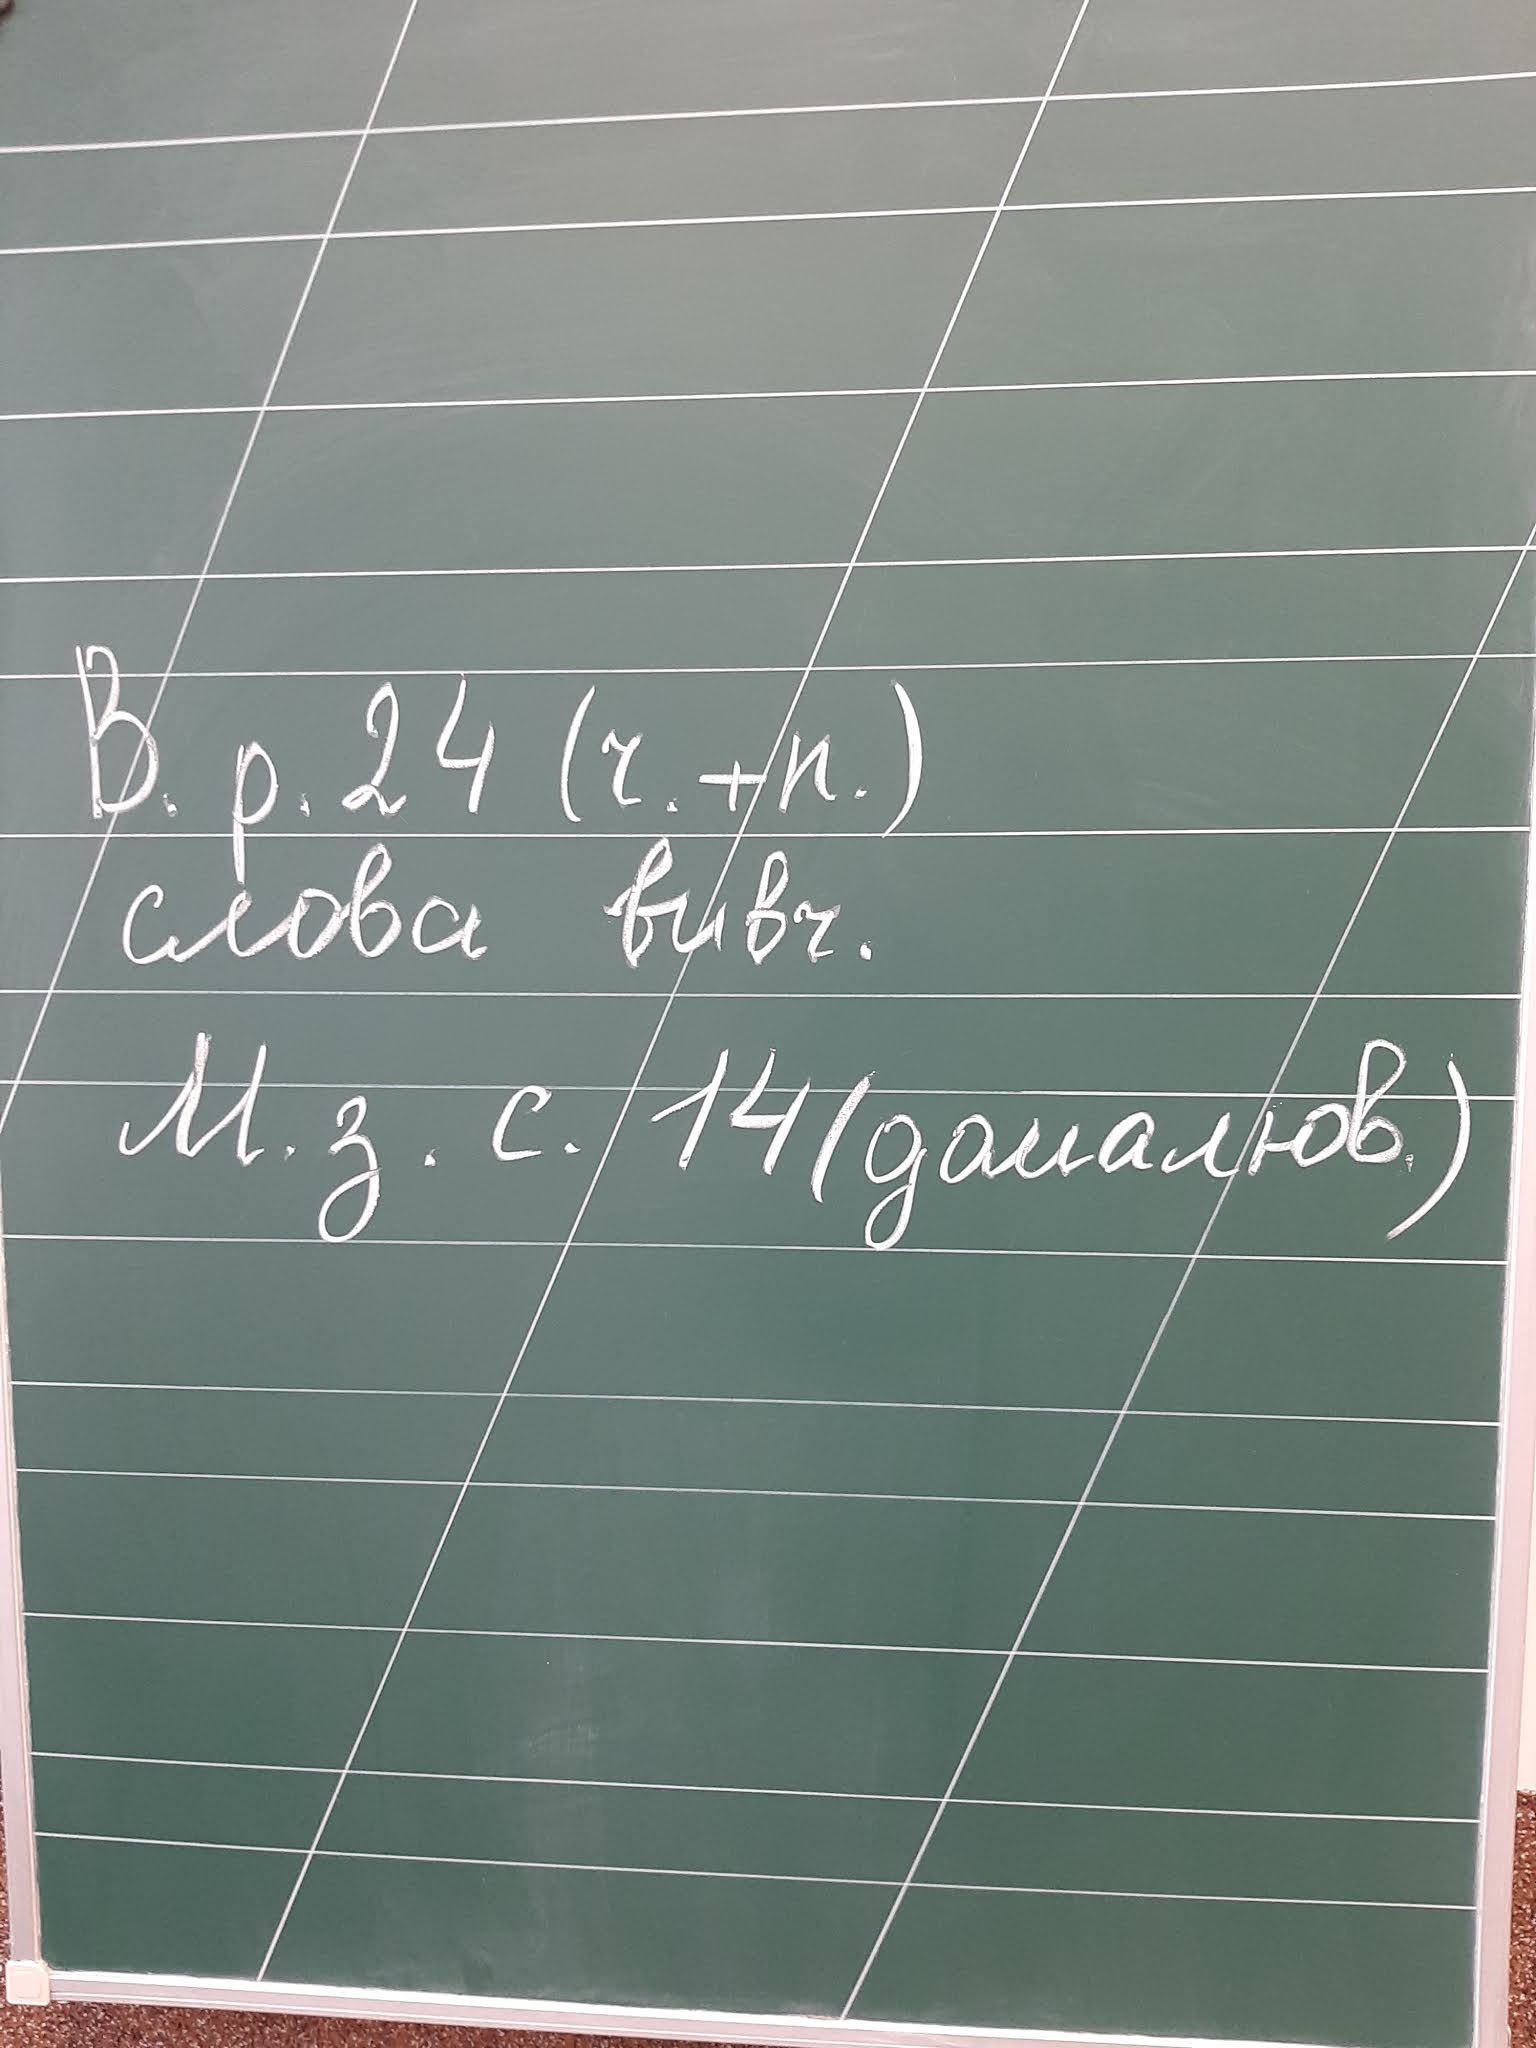 В. р. 24 (ч. + п.)
слова вивч.
М. з. с. 14 (домалюв.)